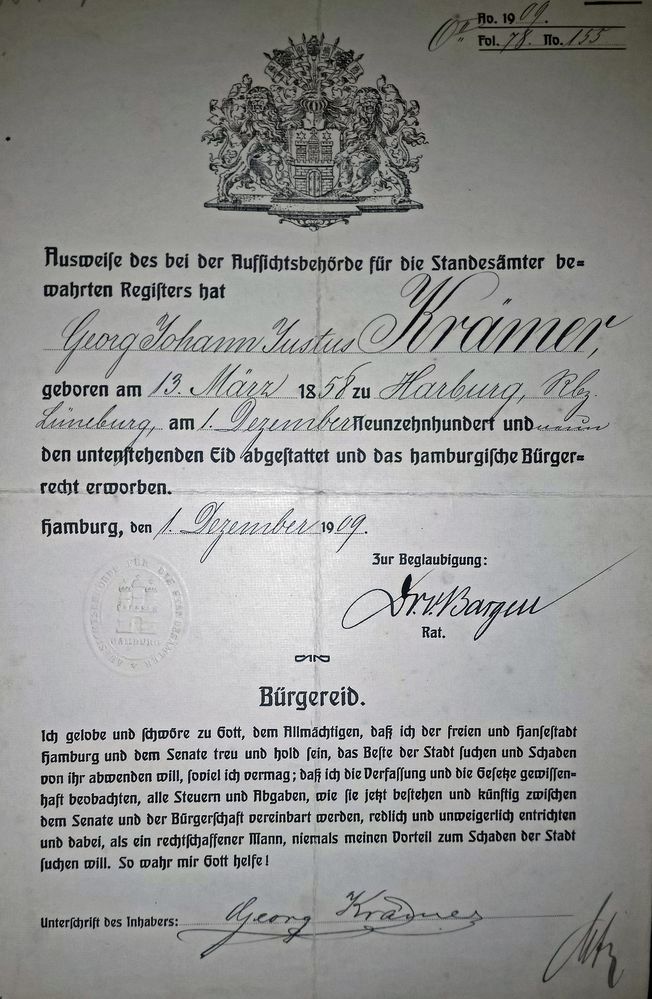 Ao. 1909.
Fol. 78. No. 155
Ausweise des bei der Aufsichtsbehörde für die Standesämter be=
wahrten Registers hat
Georg Johann Justus Krämer,
geboren am 13. März 1858 zu Harburg, Rbz.
Lüneburg, am 1. Dezember Neunzehnhundert und neun
den untenstehenden Eid abgestattet und das hamburgische Bürger=
recht erworben.
Hamburg, den 1. Dezember 1909.
Zur Beglaubigung:
Dr. v. Bargen
Rat.
HAMBURG
Bürgereid.
Ich gelobe und schwöre zu Gott, dem Allmächtigen, daß ich der freien und Hansestadt
Hamburg und dem Senate treu und hold sein, das Beste der Stadt suchen und Schaden
von ihr abwenden will, soviel ich vermag; daß ich die Verfassung und die Gesetze gewissen=
haft beobachten, alle Steuern und Abgaben, wie sie jetzt bestehen und künftig zwischen
dem Senate und der Bürgerschaft vereinbart werden, redlich und unweigerlich entrichten
und dabei, als ein rechtschaffener Mann, niemals meinen Vorteil zum Schaden der Stadt
suchen will. So wahr mir Gott helfe!
Unterschrift des Inhabers: Georg Krämer